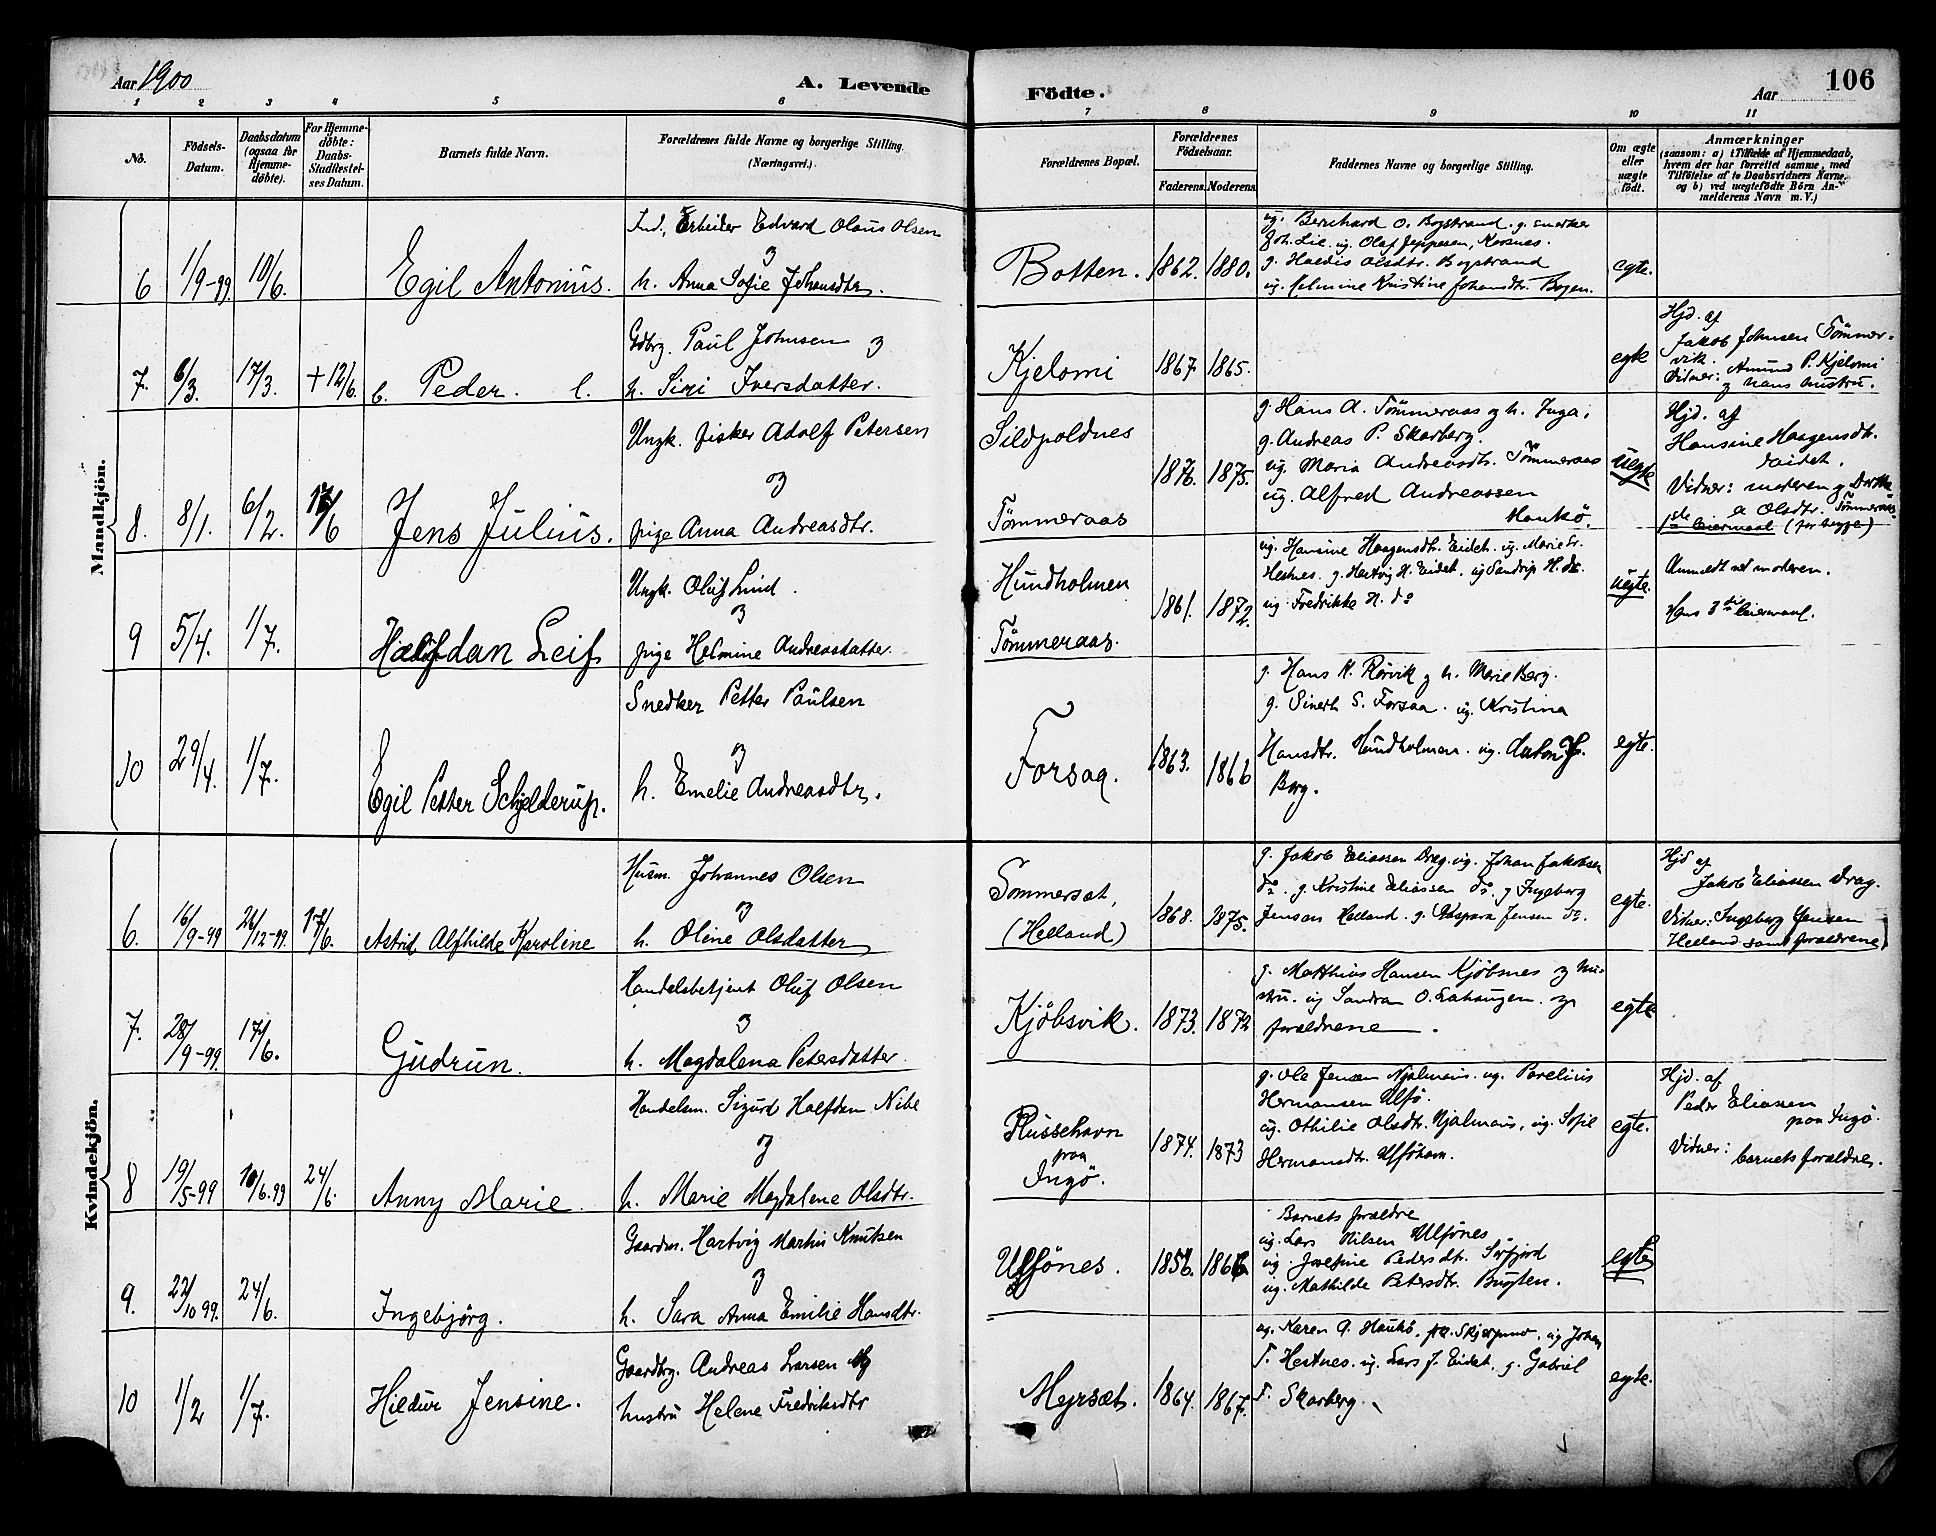 Aar 1900
A. Levende
Födte.
Aar
106
1 2 3 4 5 6 7 8 9 10 11
No.
Födsels-
Datum.
Daabsdatum
(ogsaa for
Hjemme-
döbte).
For Hjemme-
döbte:
Daabs-
Stadfestel-
ses Datum.
Barnets fulde Navn.
Forældrenes fulde Navne og borgerlige Stilling.
(Næringsvei.)
Forældrenes Bopæl.
Forældrenes
Födselsaar.
Faderens. Moderens.
Faddernes Navne og borgerlige Stilling.
Om ægte
eller
uægte
födt.
Anmærkninger
(saasom: a) i Tilfælde af Hjemmedaab,
hvem der har forrettet samme, med
Tilföielse af to Daabsvidners Navne,
og b) ved uægtefödte Börn An-
melderens Navn m. V.)
Mandkjön.
6
1/9-99.
10/6.
Egil Antonius.
Ind., Arbeider Edvard Olaus Olsen
og
h. Anna Sofie Johansdtr.
Botten.
1862. 1880.
ug. Bernhard O. Bogstrand. g. snedker
Joh. Lie. ug. Olaf Jeppesen, Korsnes.
g. Haldis Olsdtr. Bogstrand
ug. Helmine Kristine Johansdtr. Bogen.
egte.
7.
6/3.
17/3.
+ 12/6.
b. Peder. l.
Gdbrg. Paul Johnsen og
h. Siri Iversdatter.
Kjelomi
1867 1865.
egte
Hjd. af
Jakob Johnsen Tömmer-
vik.
Vidner: Amund P. Kjelomi
og hans hustru.
8.
8/1.
6/2.
17/6
Jens Julius.
Ungk. fisker Adolf Petersen
og
pige Anna Andreasdtr.
Sildpoldnes
Tömmeraas
1876. 1875.
g. Hans A. Tömmeraas og h. Inga.
g. Andreas P. Skarberg.
ug. Maria Andreasdtr. Tömmeraas
ug. Alfred Andreassen
Haukö.
uegte
Hjd. af
Hansine Haagensdtr.
Eidet.
Vidner: moderen og Dorthea
Olsdtr. Tömmeraas.
1ste leiermaal (for begge)
9
5/4.
1/7.
Halfdan Leif
Ungk. Oluf Lind.
og
pige Helmine Andreasdatter.
Hundholmen
Tömmeraas.
1861. 1872.
ug. Hansine Haagensdtr. Eidet. ug. Marie Sr.
Hestnes. g. Hartvig H. Eidet. ug Sandrip H. do
ug. Fredrikke H. do
uegte.
Anmeldt ved moderen.
Hans 3die leiermaal.
10
29/4.
1/7.
Egil Petter Schjelderup.
Snedker Petter Paulsen
og
h. Emelie Andreasdtr.
Forsaa.
1863. 1866
g. Hans K. Rörvik og h. Marie Berg.
g. Sinerth S. Forsaa. ug. Kristina
Hansdtr. Hundholmen. ug. Anton J.
Borg.
egte.
Kvindekjön.
6.
16/9-99
26/12-99.
17/6.
Astrid Alfhilde Karoline
Husm. Johannes Olsen
og
h. Oline Olsdatter
Sommerset,
(Helland)
1868. 1875.
g. Jakob Eliassen Drag. ug. Johan Jakobsen
do. g. Kristine Eliassen do. g Ingeborg
Jensen Helland. g. Kaspara Jensen do.
egte.
Hjd af
Jakob Eliassen Drag.
Vidner: Ingeborg Jensen
Helland samt forældrene
7.
28/9-99.
17/6.
Gudrun.
Handelsbetjent Oluf Olsen
og
h. Magdalena Petersdatter.
Kjöbsvik.
1873. 1872
g. Matthias Hansen Kjöbsnes og hu-
stru. ug Sandra O. Lahaugen. og
forældrene.
egte
8
19/5-99
10/6.99
24/6.
Anny Marie.
Handelsm. Sigurd Halfdan Nibe
og
h. Marie Magdalene Olsdtr.
Russehavn
paa
Ingö.
1874. 1873
g. Ole Jensen Njalmaris. ug. Parelius
Hermansen Ulfö.
ug. Othilie Olsdtr. Njalmaris, ug. Sofie
Hermansdtr. Ulföhavn.
egte.
Hjd. af
Peder Eliassen
paa Ingö.
Vidner:
barnets forældre.
9.
22/10 99.
24/6.
Ingebjörg.
Gaardm. Hartvig Martin Knutsen
og
h. Sara Anna Emilie Hansdtr.
Ulfönes.
1856. 1866
Barnets forældre
ug. Lars Nilsen Ulfönes
ug. Josefine Pedersdtr. Sörfjord
ug. Mathilde Petersdtr. Bugten.
egte
10
1/2
1/7.
Hildur Jensine.
Gaardbrg. Andreas Larsen og
hustru Helene Fredriksdtr
Mejrsæt.
1864. 1867.
ug. Karen A. Haukö, ug Johan
T. Hestnes. ug. Lars J. Eidet. g. Gabriel
T. Skarberg.
egte.